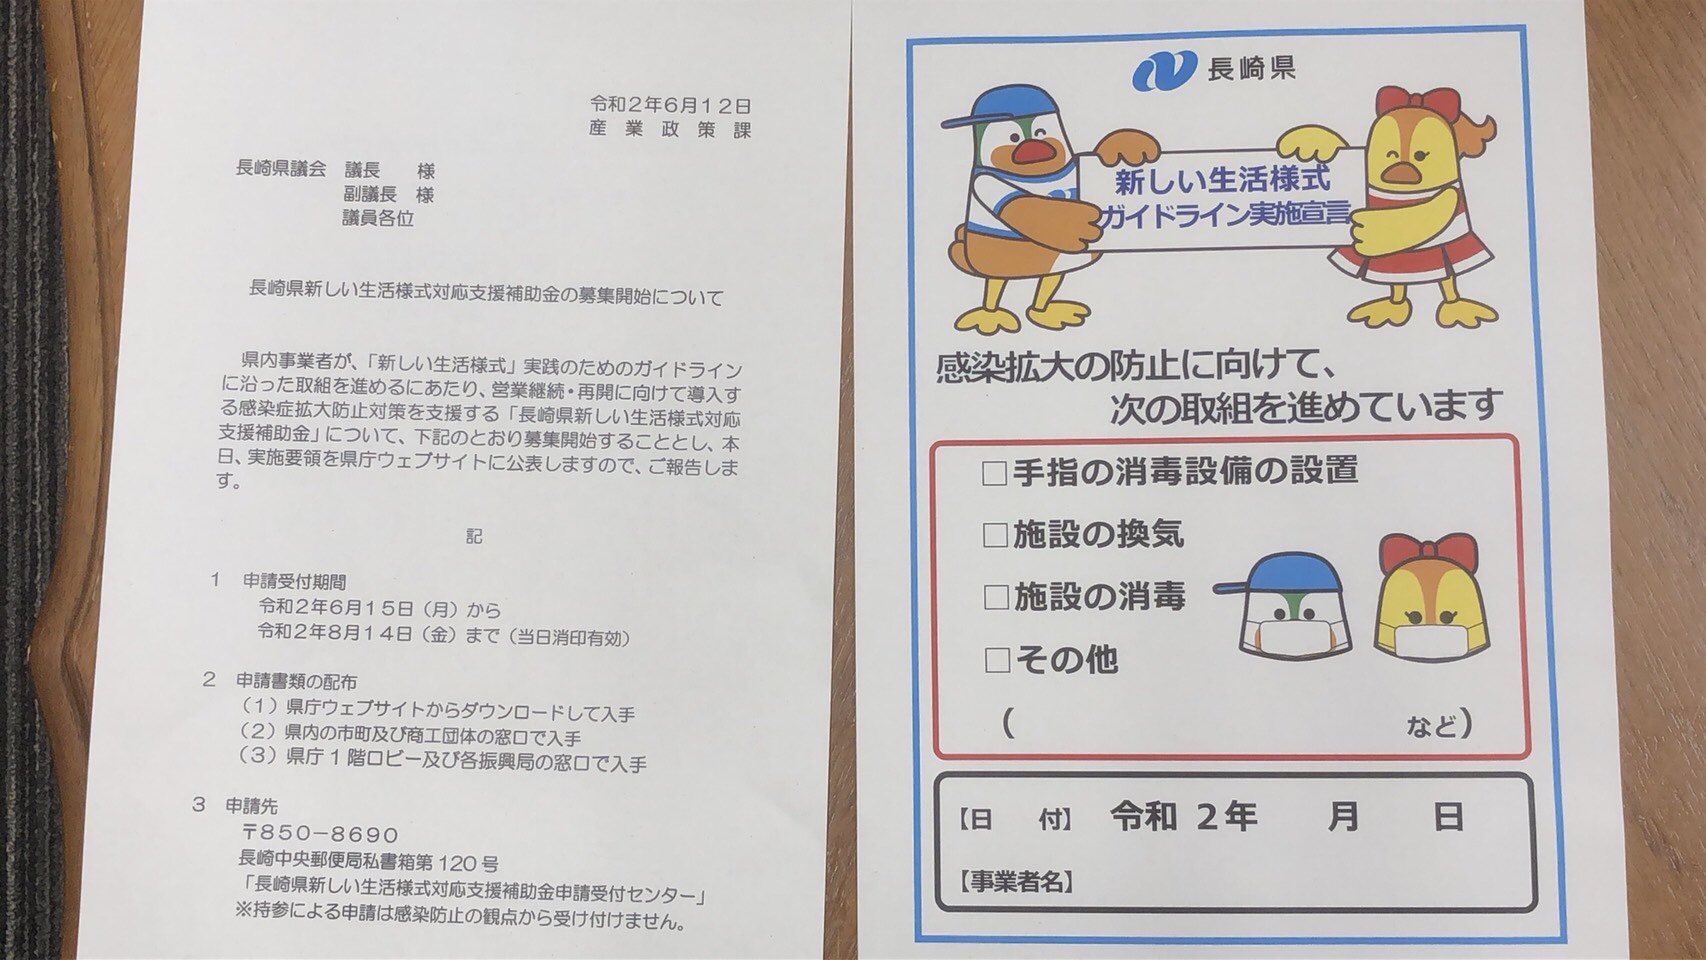 令和２年６月１２日
産業政策課
長崎県議会　議長　　様
副議長　様
議員各位
長崎県新しい生活様式対応支援補助金の募集開始について
県内事業者が、「新しい生活様式」実践のためのガイドライン
に沿った取組を進めるにあたり、営業継続・再開に向けて導入す
る感染症拡大防止対策を支援する「長崎県新しい生活様式対応
支援補助金」について、下記のとおり募集開始することとし、本
日、実施要領を県庁ウェブサイトに公表しますので、ご報告しま
す。
記
１　申請受付期間
令和２年６月１５日（月）から
令和２年８月１４日（金）まで（当日消印有効）
２　申請書類の配布
（１）県庁ウェブサイトからダウンロードして入手
（２）県内の市町及び商工団体の窓口で入手
（３）県庁１階ロビー及び各振興局の窓口で入手
３　申請先
〒８５０－８６９０
長崎中央郵便局私書箱第120号
「長崎県新しい生活様式対応支援補助金申請受付センター」
※持参による申請は感染防止の観点から受け付けません。
長崎県
新しい生活様式
ガイドライン実施宣言
感染拡大の防止に向けて、
次の取組を進めています
□手指の消毒設備の設置
□施設の換気
□施設の消毒
□その他
（　　　　　　　　　など）
【日　付】　令和２年　　月　　日
【事業者名】